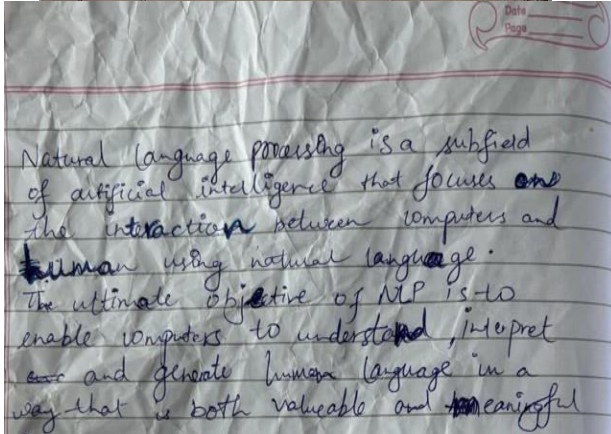 Date
Page
Natural language processing is a subfield
of artificial intelligence that focuses on
the interaction between computers and
human using natural language.
The ultimate objective of NLP is to
enable computers to understand, interpret
and generate human language in a
way that is both valueable and meaningful